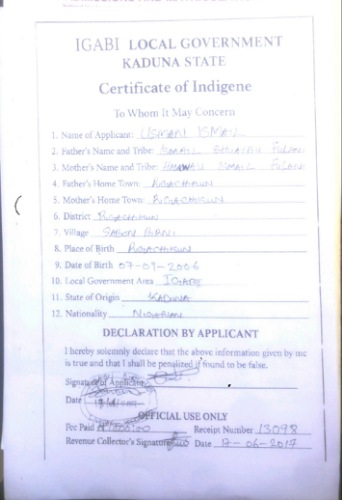 IGABI LOCAL GOVERNMENT
KADUNA STATE
Certificate of Indigene
To Whom It May Concern
1. Name of Applicant: USMAN ISMAIL
2. Father's Name and Tribe: ISMAIL FULANI
3. Mother's Name and Tribe: HAUWAU ISMAIL FULANI
4. Father's Home Town: RIGACHIKUN
5. Mother's Home Town: RIGACHIKUN
6. District RIGACHIKUN
7. Village SABON BIRNI
8. Place of Birth RIGACHIKUN
9. Date of Birth 07-09-2006
10. Local Government Area IGABI
11. State of Origin KADUNA
12. Nationality NIGERIAN
DECLARATION BY APPLICANT
I hereby solemnly declare that the above information given by me
is true and that I shall be penalized if found to be false.
Signature of Applicant
Date
OFFICIAL USE ONLY
Fee Paid Receipt Number 13098
Revenue Collector's Signature Date 7-06-2017